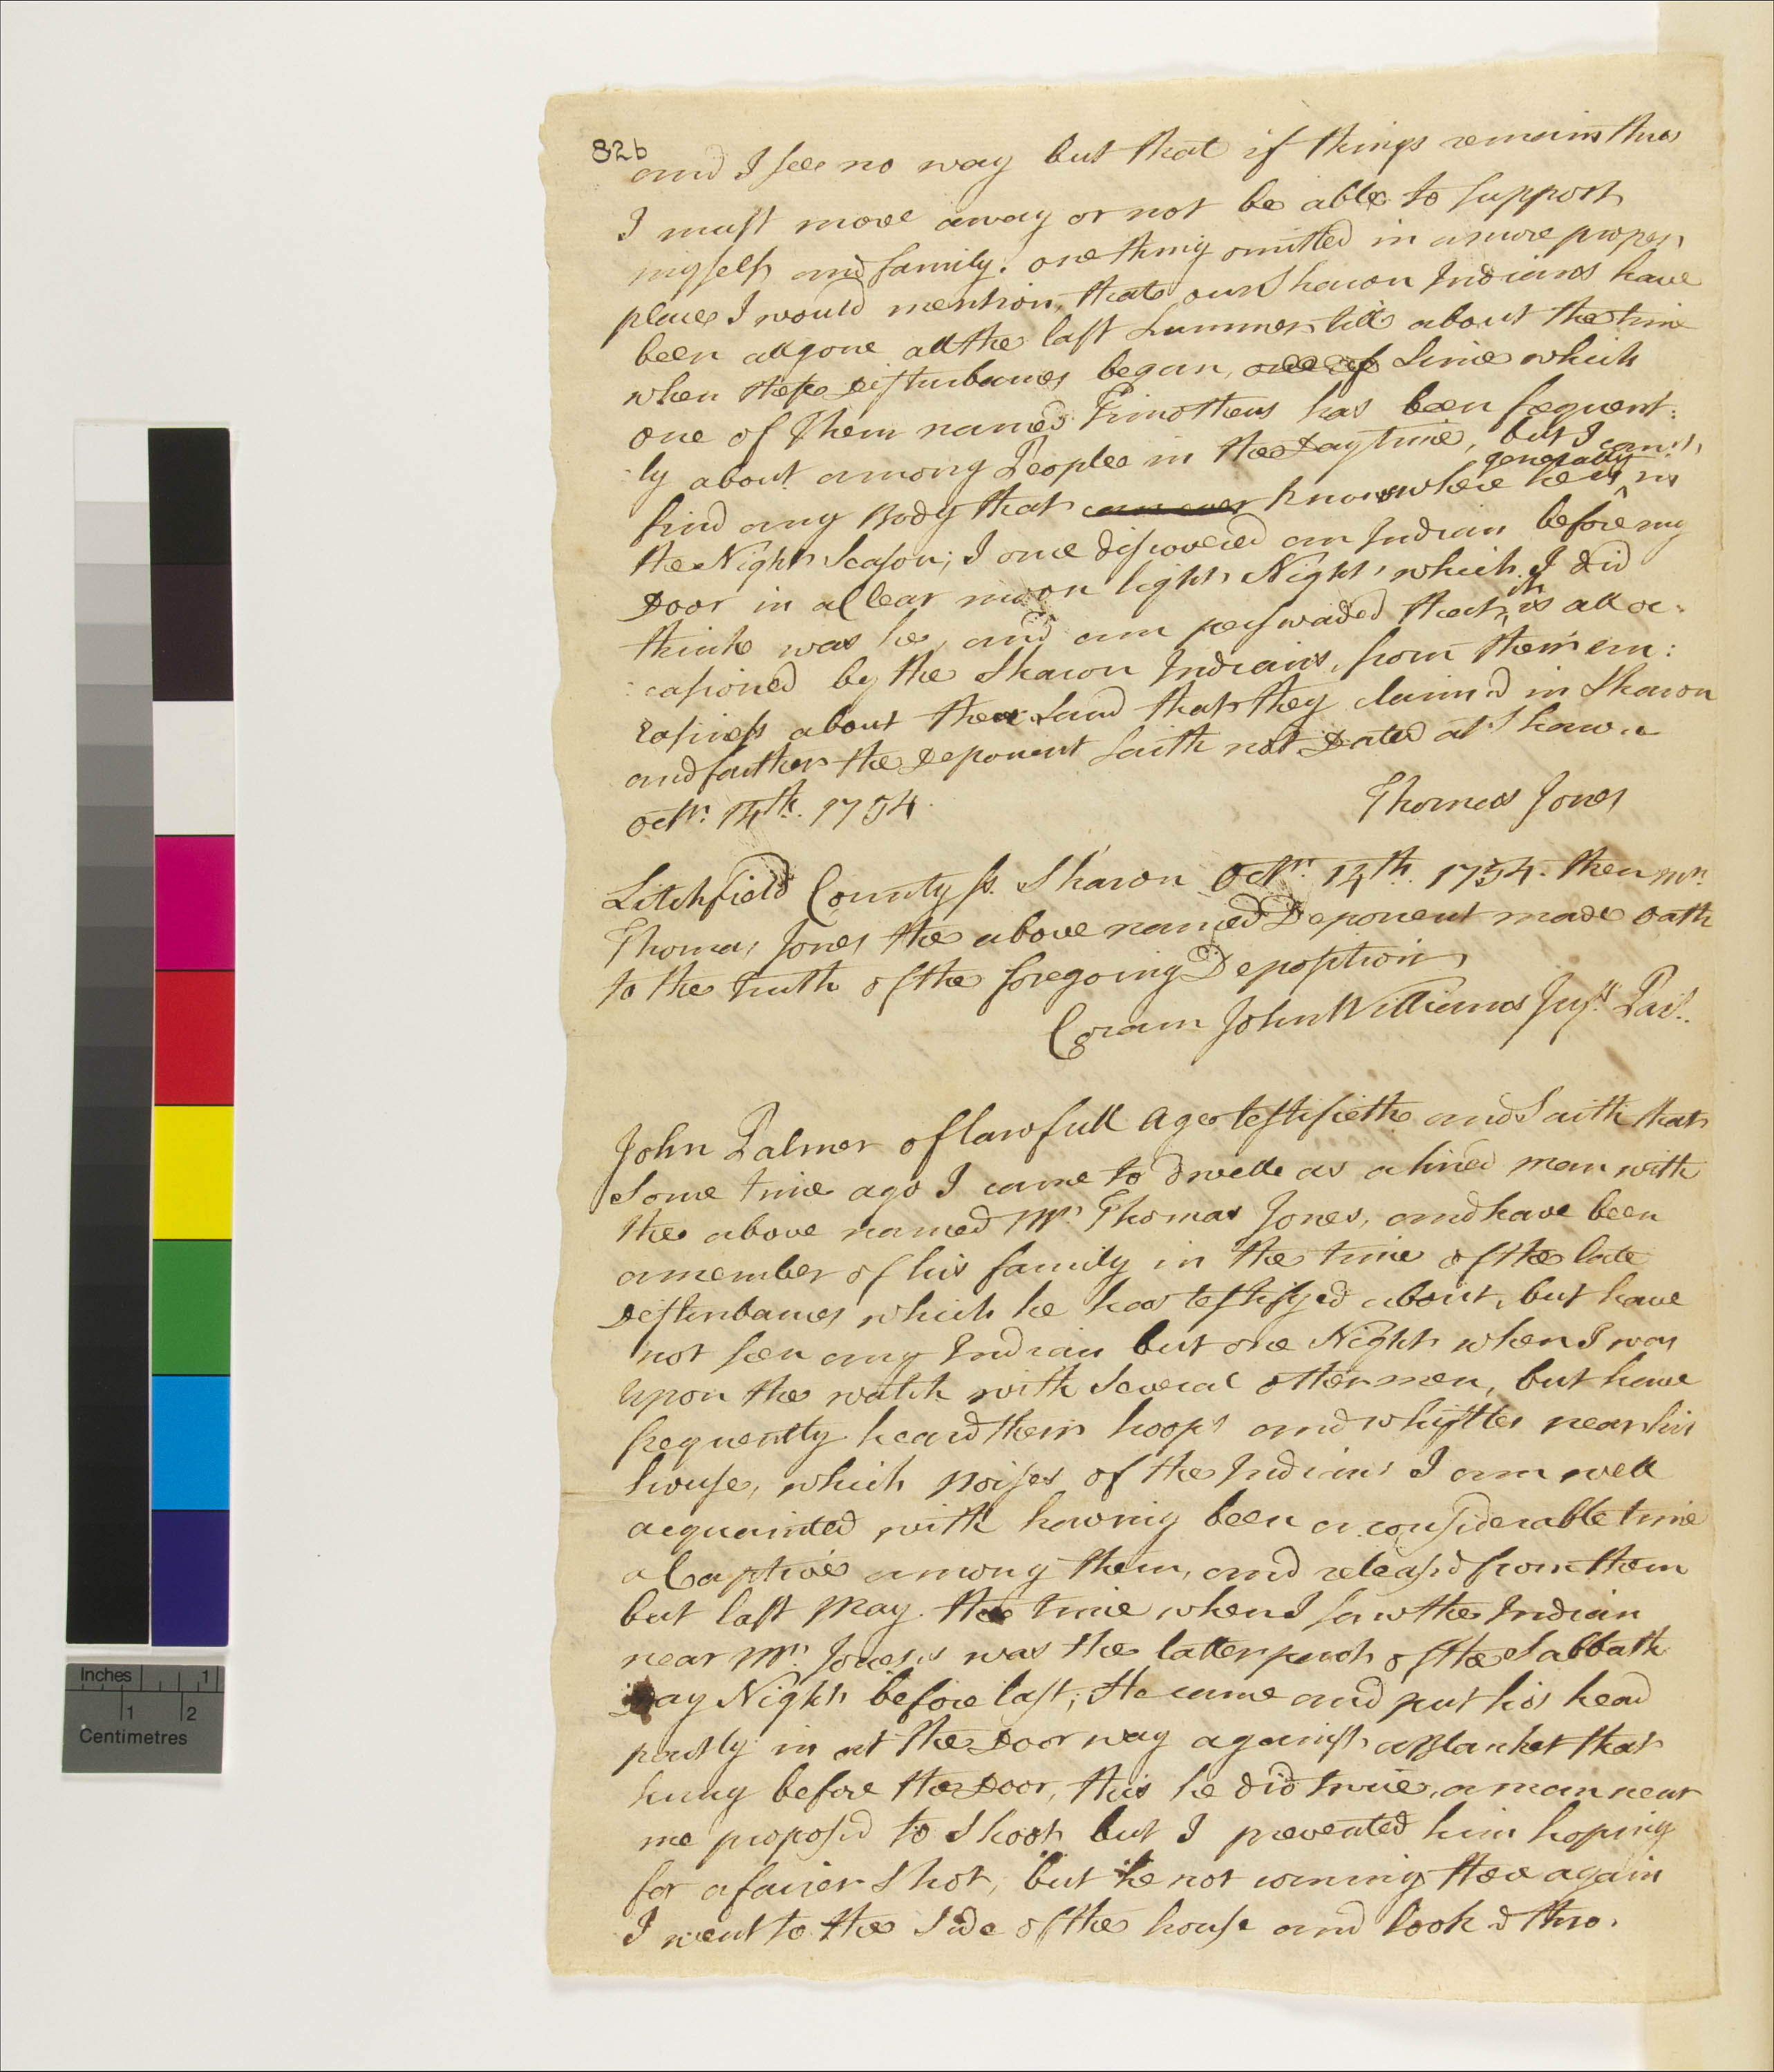 82b
and I see no way but that if things remain thus
I must move away or not be able to support
myself and family. one thing omitted in a more proper
place I would mention, that our Sharon Indians have
been all gone all the last Summer till about the time
when these Disturbances began, one of Since which
one of them named Timotheus has been frequent:
:ly about among People in the Day time, but I can't
generally
find any Body that can ever knows where he is in
the Night Season; I once discovered an Indian before my
Door in a Clear moon light Night, which I did
think was he, and am perswaded that it is all oc:
:casioned by the Sharon Indians, from their un:
easiness about the Land that they claim'd in Sharon
and farther the Deponent saith not Dated at Sharon
Octr. 14th. 1754.
Thomas Jones
Litchfield County ss. Sharon Octr. 14th. 1754. then Mr.
Thomas Jones the above named Deponent made Oath
to the truth of the foregoing Deposition,
Coram John Williams Just. Pacs.
John Palmer of lawfull Age testifieth and Saith that
Some time ago I came to dwell as a hired man with
the above named Mr. Thomas Jones, and have been
a member of his family in the time of the late
Disturbances which he has testifyed about, but have
not seen any Indian but one Night when I was
upon the watch with Several other men, but have
frequently heard their hoops and whistles near his
house, which Noises of the Indians I am well
acquainted with having been a considerable time
a Captive among them, and releas'd from them
but last May. the time when I saw the Indian
near Mr. Jones's was the latter part of the Sabbath
Day Night before last; He came and put his head
partly in at the Door way against a Blanket that
hung before the Door, this he did twice, a man near
me propos'd to Shoot but I prevented him hoping
for a fairer Shot, but he not coming there again
I went to the Side of the house and look'd thro.
Inches 1
1 2
Centimetres